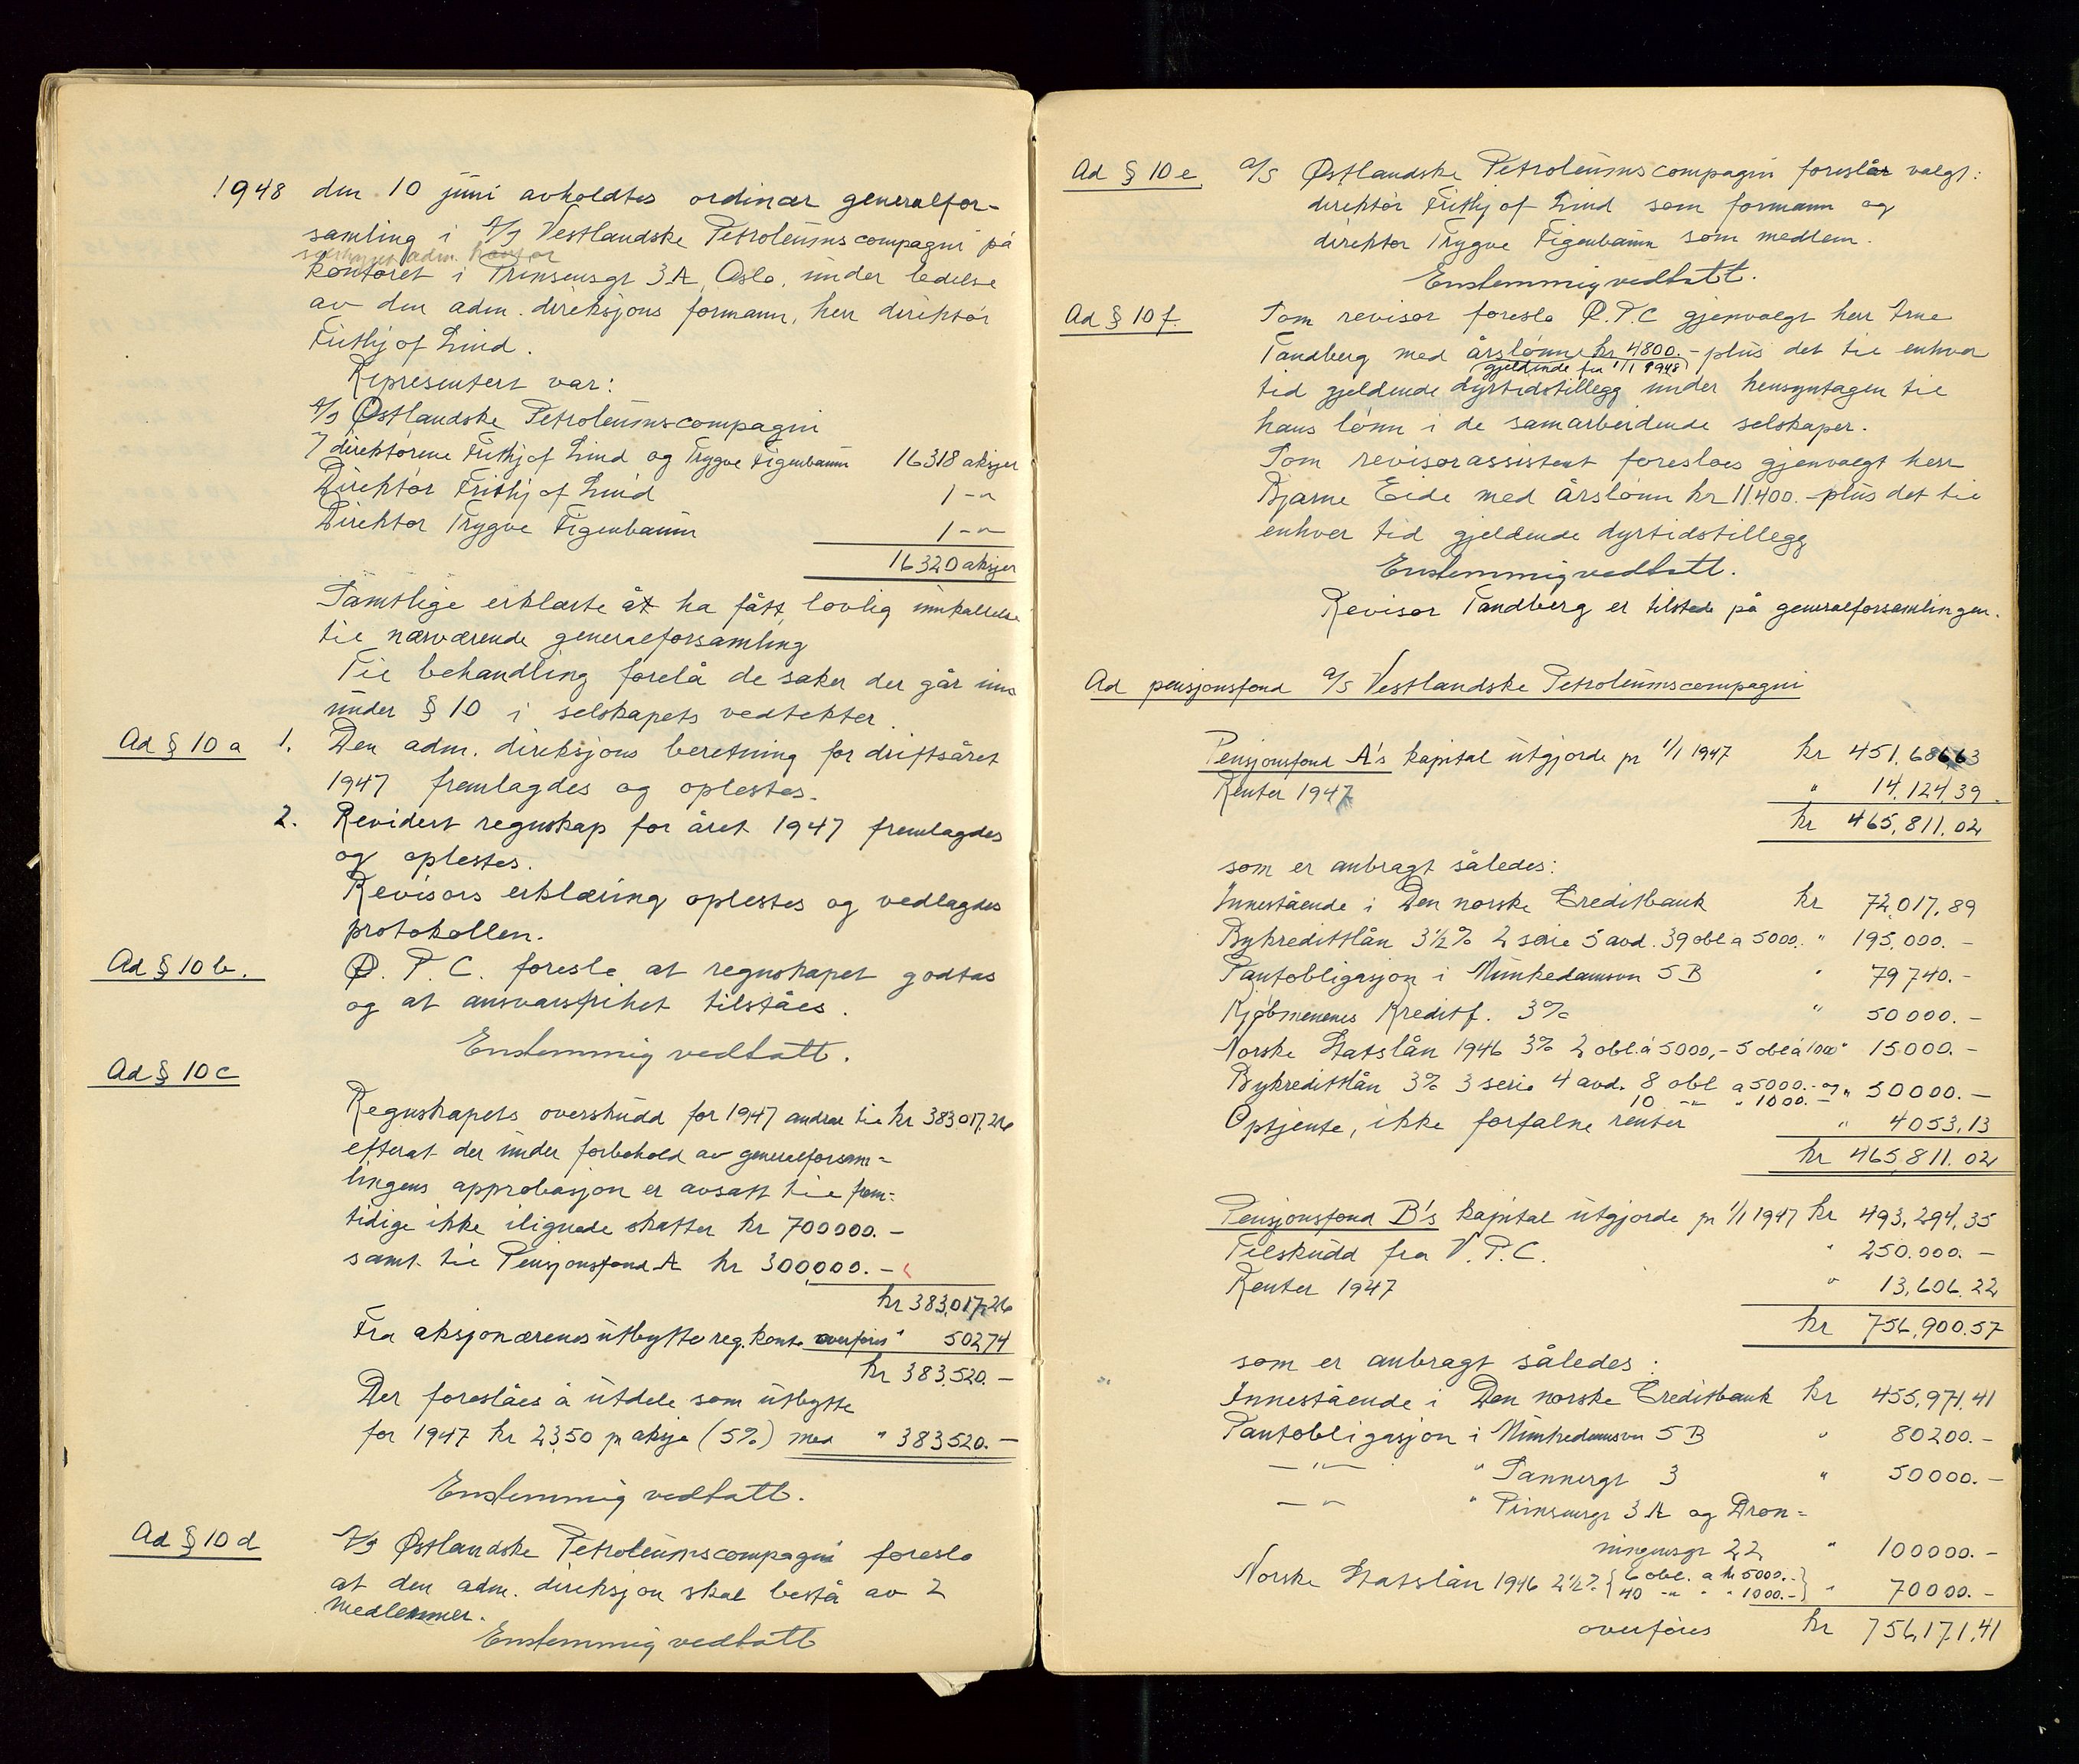 1948 den 10 juni avholdtes ordinær generalfor-
samling i A/S Vestlandske Petroleumscompagni på
selskapet adm. kontor
kontoret i Prinsensgt 3A, Oslo, under ledelse
av den adm. direksjons formann, herr direktør
Frithjof Lind.
Representert var:
A/S Østlandske Petroleumscompagni
v/ direktørene Frithjof Lind og Trygve Figenbaum 16318 aksjer
Direktør Frithjof Lind 1 -"-
Direktør Trygve Figenbaum 1 -"-
16320 aksjer
Samtlige erklærte åt ha fått lovlig innkallelse
til nærværende generalforsamling
Til behandling forelå de saker der går inn
under § 10 i selskapets vedtekter.
Ad § 10 a 1. Den adm. direksjons beretning for driftsåret
1947 fremlagdes og oplestes.
2. Revidert regnskap for året 1947 fremlagdes
og oplestes.
Revisors erklæring oplestes og vedlagdes
protokollen.
Ad § 10 b. Ø. P. C. foreslo at regnskapet godtas
og at ansvarsfrihet tilståes.
Enstemmig vedtatt.
Ad § 10 c
Regnskapets overskudd for 1947 andrar til kr 383.017,26
efterat der under forbehold av generalforsam=
lingens approbasjon er avsatt til frem=
tidige ikke ilignede skatter kr 700000.-
samt til Pensjonsfond A kr 300,000.-
kr 383,017,26
Fra aksjonærenes utbytte reg. konto overføres " 50274
kr 383.520.-
Der foreslåes å utdele som utbytte
for 1947 kr 23,50 pr aksje (5%) med " 383520.-
Enstemmig vedtatt.
Ad § 10 d A/S Østlandske Petroleumscompagni foreslo
at den adm. direksjon skal bestå av 2
medlemmer.
Enstemmig vedtatt
Ad § 10 e. A/S Østlandske Petroleumscompagni foreslår valgt:
direktør Frithjof Lind som formann og
direktør Trygve Figenbaum som medlem.
Enstemmig vedtatt.
Ad § 10 f. Som revisor foreslo Ø.P.C gjenvalgt herr Arne
Tandberg med årslønn kr 4800.- plus det til enhver
(gjeldende fra 1/1 1948)
tid gjeldende dyrtidstillegg under hensyntagen til
hans lønn i de samarbeidende selskaper.
Som revisorassistent foresloes gjenvalgt herr
Bjarne Eide med årslønn kr 11400.- plus det til
enhver tid gjeldende dyrtidstillegg
Enstemmig vedtatt.
Revisor Tandberg er tilstede på generalforsamlingen.
Ad pensjonsfond A/S Vestlandske Petroleumscompagni
Pensjonsfond A's kapital utgjorde pr 1/1 1947 kr 451.686,63
Renter 1947 " 14,124,39.
kr 465,811,02
som er anbragt således:
Innestående i Den norske Creditbank kr 72,017,89
Bykredittlån 3 1/2% 2 serie 5 avd. 39 obl a 5000. " 195,000.-
Pantobligasjon i Munkedamsvn 5 B " 79740.-
Kjøbmenenes Kreditf. 3% " 50000.-
Norske Statslån 1946 3% 2 obl. á 5000,- 5 obl á 1000 " 15000.-
Bykredittlån 3% 3 serie 4 avd. 8 obl a 5000.- og " 50000.-
10 -"- " 1000.-
Optjente, ikke forfalne renter " 4053,13
kr 465,811.02
Pensjonsfond B's kapital utgjorde pr 1/1 1947 kr 493,294,35
Tilskudd fra V. P. C. " 250.000.-
Renter 1947 " 13,606,22
kr 756,900.57
som er anbragt således:
Innestående i Den norske Creditbank kr 455,971,41
Pantobligasjon i Munkedamsvn 5 B " 80200.-
-"- " Sannergt 3 " 50000.-
-"- " Prinsensgt 3 A og Dron=
ningensgt 22 " 100000.-
Norske Statslån 1946 2 1/2% { 6 obl. a kr 5000.- } " 70000.-
40 -"- " " 1000.-
overføres kr 756,171,41